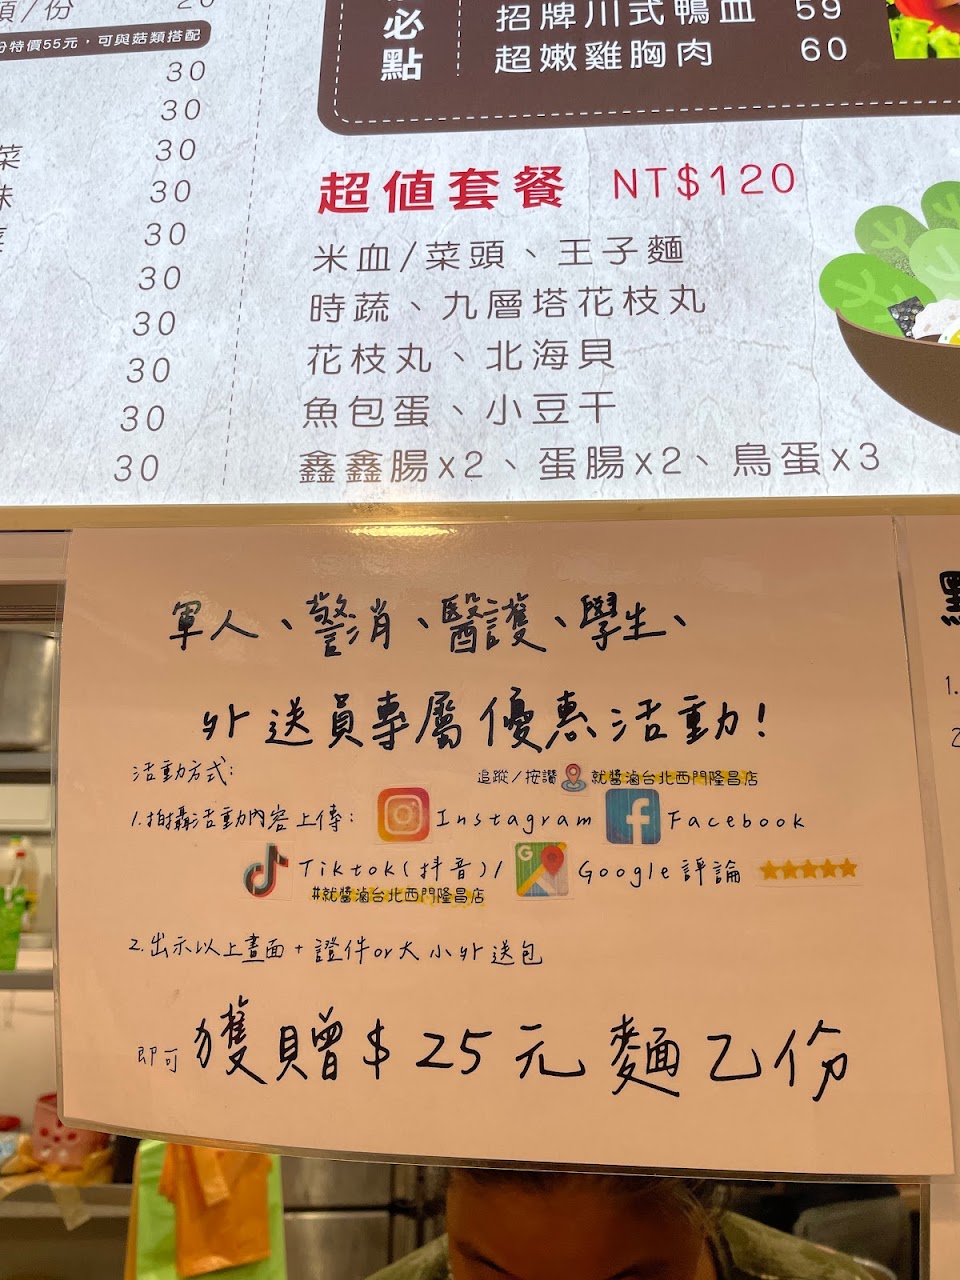 頭/份 20
份特價55元，可與菇類搭配
30
30
菜 30
味 30
30
30
30
30
30
30
必點
招牌川式鴨血 59
超嫩雞胸肉 60
超值套餐 NT$120
米血/菜頭、王子麵
時蔬、九層塔花枝丸
花枝丸、北海貝
魚包蛋、小豆干
鑫鑫腸x2、蛋腸x2、鳥蛋x3
軍人、警消、醫護、學生、
外送員專屬優惠活動!
活動方式:
追蹤/按讚 就醬滷台北西門隆昌店
1.拍攝活動內容上傳: Instagram Facebook
Tiktok(抖音)/ Google評論
#就醬滷台北西門隆昌店
2.出示以上畫面+證件or大小外送包
即可獲贈$25元麵乙份
1.
2